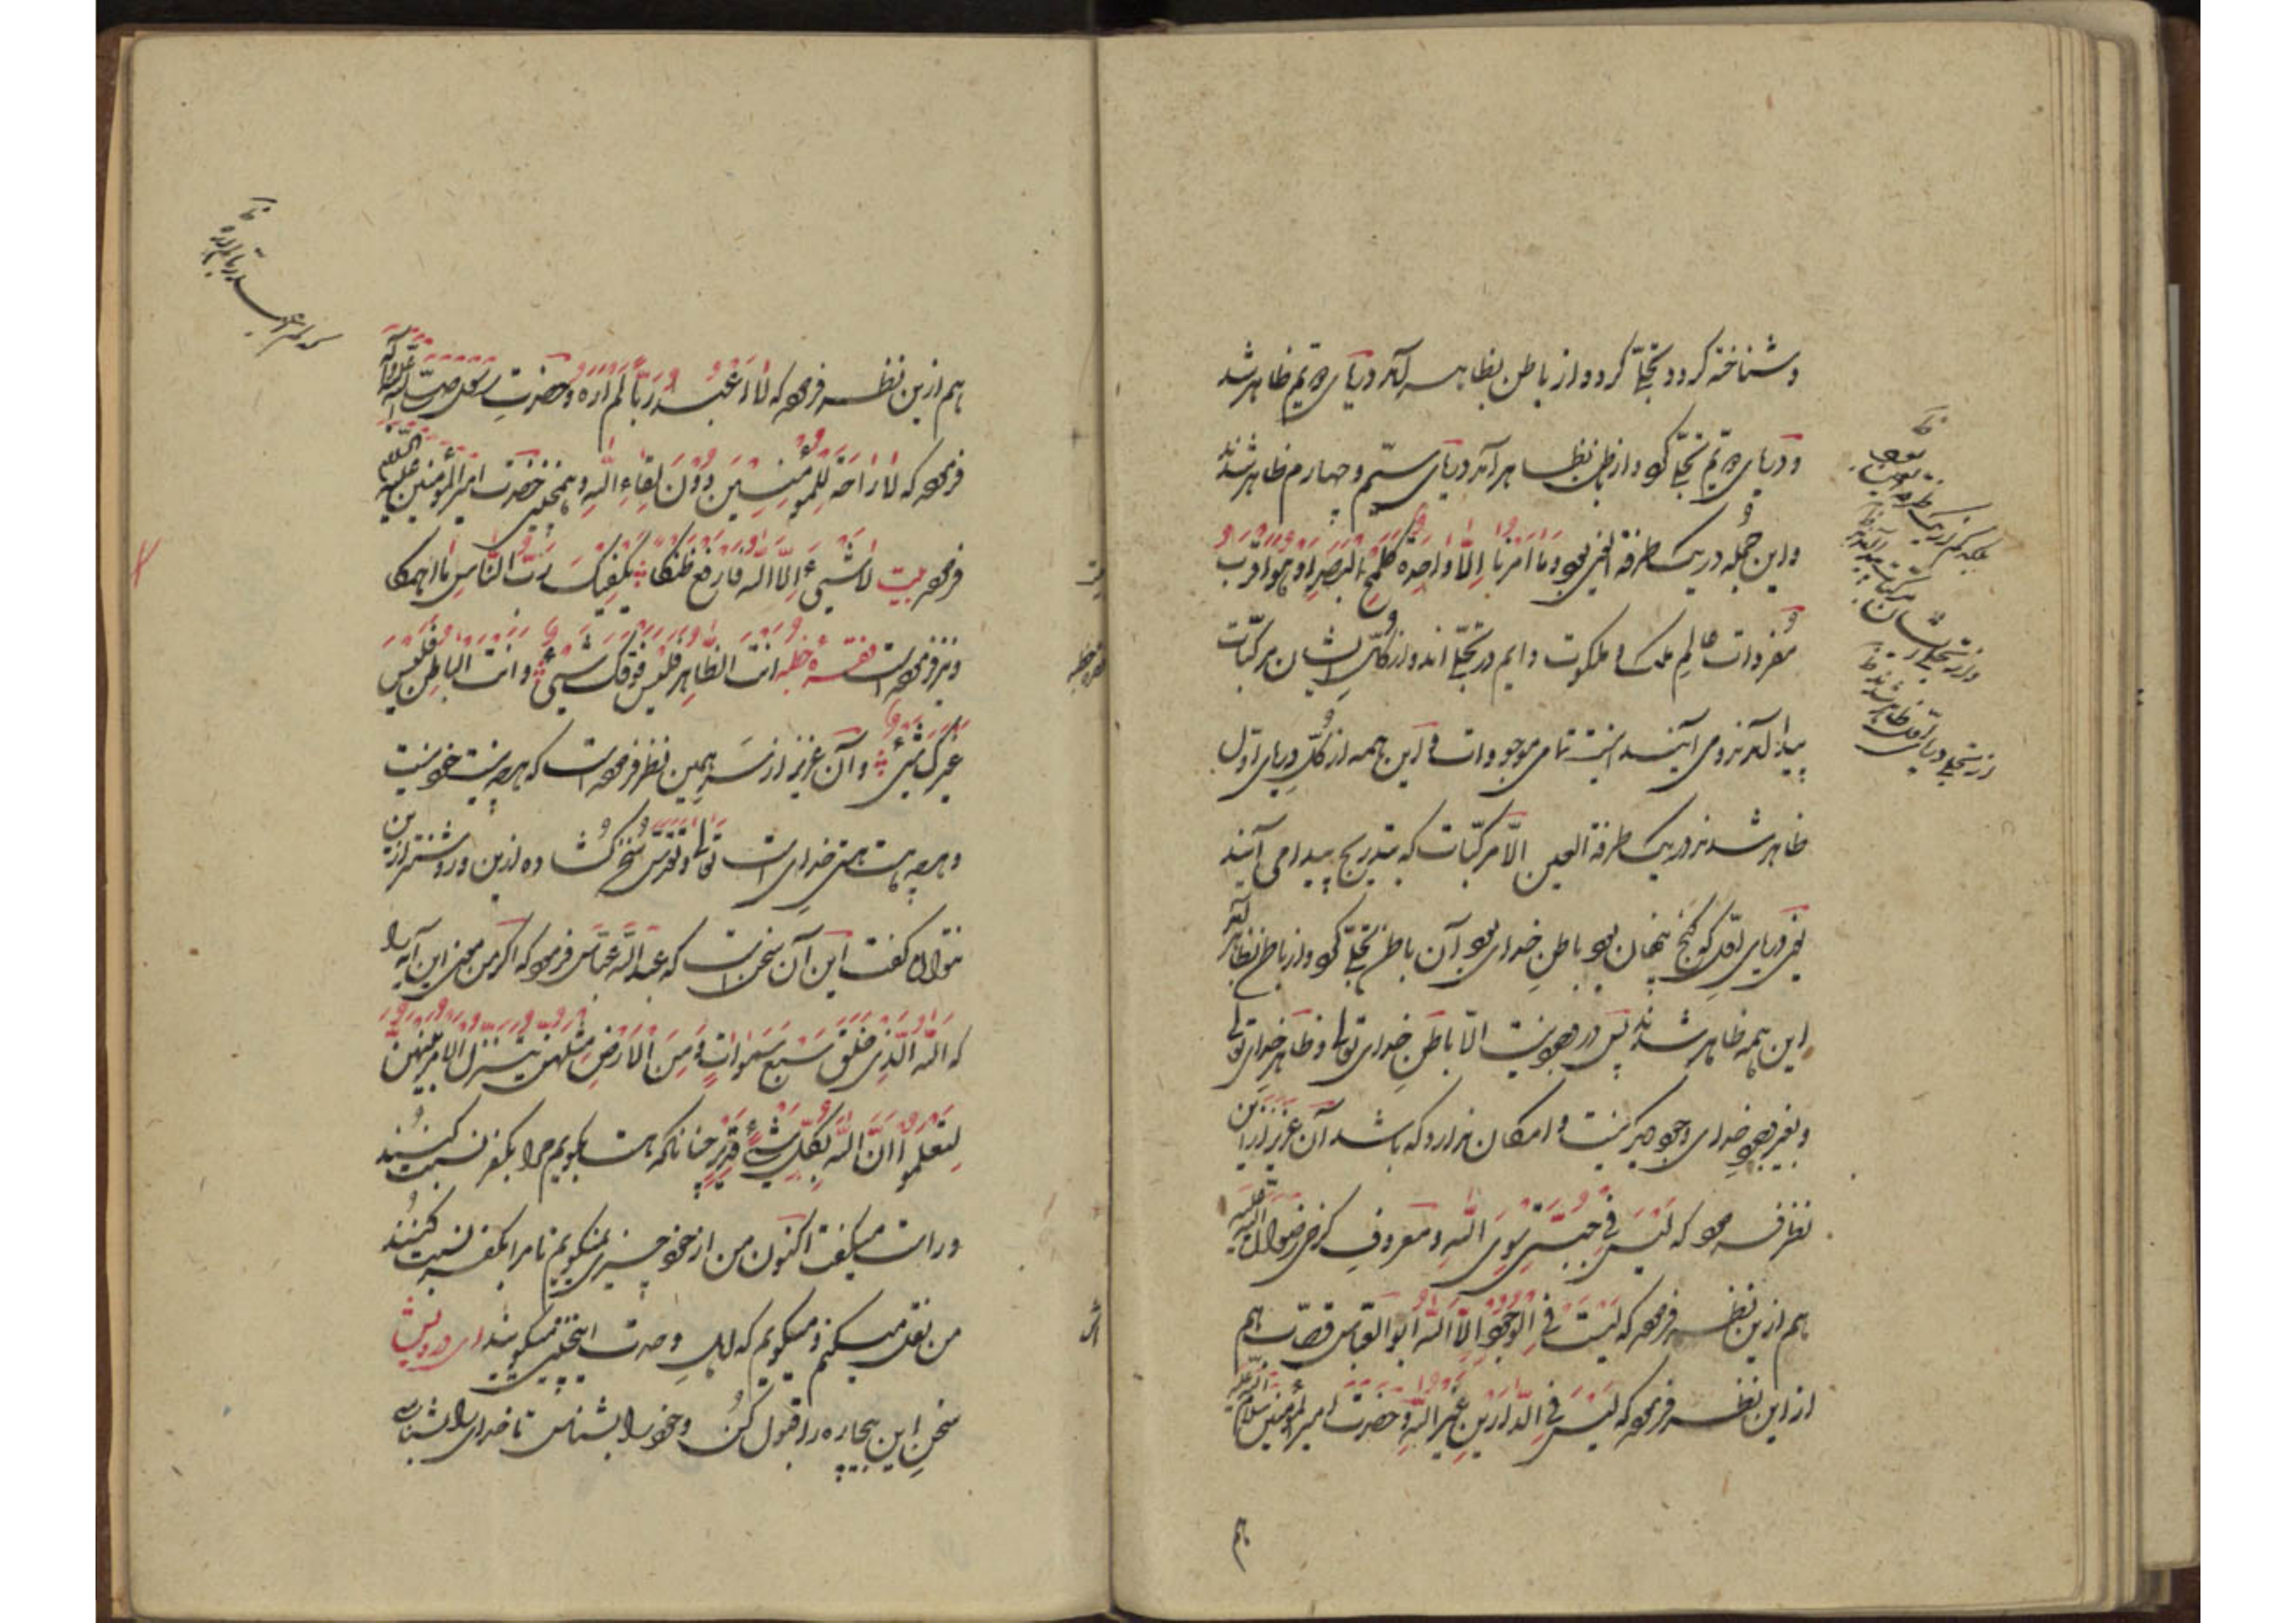 و شناخته گردد تجلّی کرد و از باطن بظاهر آمد دریای دویم ظاهر شد
و دریای دویم تجلّی کرد و از باطن بظاهر آمد دریای سیّم و چهارم ظاهر شدند
و این جمله در یک طرفة العین بود و ما امرنا اِلّا واحدة کلمح البصر او هو اقرب
مفردات عالم ملک و ملکوت دایم در تجلّی اند و از تجلّی ایشان مرکّبات
پیدا آمدند و می آیند اینست تمامی موجودات و این همه از تجلّی دریای اوّل
ظاهر شدند در یک طرفة العین الّا مرکّبات که بتدریج پیدا می آیند
یعنی دریای اوّل کو گنج پنهان بود باطن خدای بود آن باطن تجلّی کرد و از باطن بظاهر آمد
این همه ظاهر شدند پس در وجود نیست الّا باطن خدای تعالی و ظاهر خدای تعالی
و بغیر وجود خدای وجود دیگر نیست و امکان ندارد که باشد آن عزیز از این
نظر فرمود که لَیْسَ فی جُبّتی سِوَی اللهِ و معروفِ کرخی رضوان الله علیه
هم ازین نظر فرمود که لَیْسَ فِی الوجودِ اِلّا الله ابو العبّاس قصّاب هم
از این نظر فرمود که لَیْسَ فی الدّارَیْنِ غَیْرُ اللهِ و حضرت امیر المؤمنین سلام الله علیه
هم
بلکه کم از یک طرفة العین بود
و از تجلّی ایشان مرکّبات پیدا آمدند
از تجلّی دریای اوّل ظاهر شدند
هم ازین نظر فرمود که لَا اَعْبُدُ رَبّاً لَمْ اَرَهُ و حضرتِ رسول صلّی الله علیه و آله
فرمود که لَا رَاحَةَ لِلْمُؤمِنِینَ دُونَ لِقَاءِ اللهِ و همچنین حضرت امیر المؤمنین علیه السّلام
فرمود بیت لا شَیْءَ اِلّا الله فارفع ظنکا یکفیک ربّ النّاسِ ما اهمکا
و نیز فرموده است انت الظاهر فلیس فوقک شیءٌ و انت الباطن فلیس
غیرک شیءٌ و آن عزیز از سر همین نظر فرموده است که هر چه نیست خود نیست
و هر چه هست هستی خدای است تعالی و تقدّس سُخن گُشاده ازین و روشنتر ازین
نتوان گفت این آن سخن است که عبد الله عبّاس فرمود که اگر من معنی این آیه را
که الله الّذی خلق سبع سموات و من الارض مثلهن یتنزل الامر بینهنّ
لتعلموا انّ الله بکلّ شیءٍ قدیر چنانکه هست بگویم مرا بکفر نسبت کنند
و راست میگفت اکنون من از خود چیزی نمیگویم تا مرا بکفر نسبت کنند
من نقل میکنم و میگویم که اهل وحدت اینچنین میگویند ای درویش
سخنِ این بیچاره را قبول کُن و خود را بشناس تا خدای را بشناسی